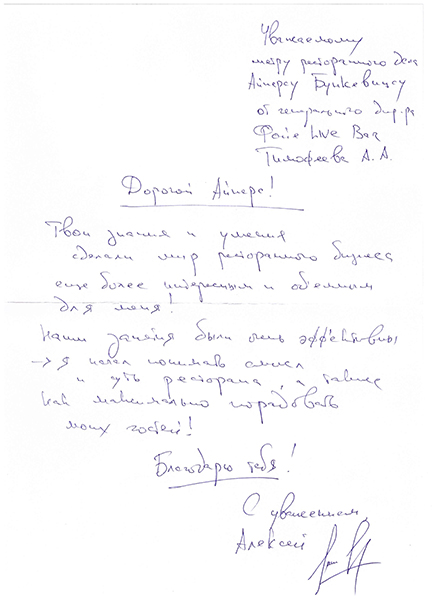 Уважаемому
мэтру ресторанного дела
Айнарсу Бункевицсу
от генерального дир-ра
Фойе LIVE Bar
Тимофеева А.А.
Дорогой Айнарс!
Твои знания и умения
сделали мир ресторанного бизнеса
еще более интересным и объемным
для меня!
Наши занятия были очень эффективны
→ я начал понимать смысл
и суть ресторана, а также
как максимально порадовать
моих гостей!
Благодарю тебя!
С уважением,
Алексей